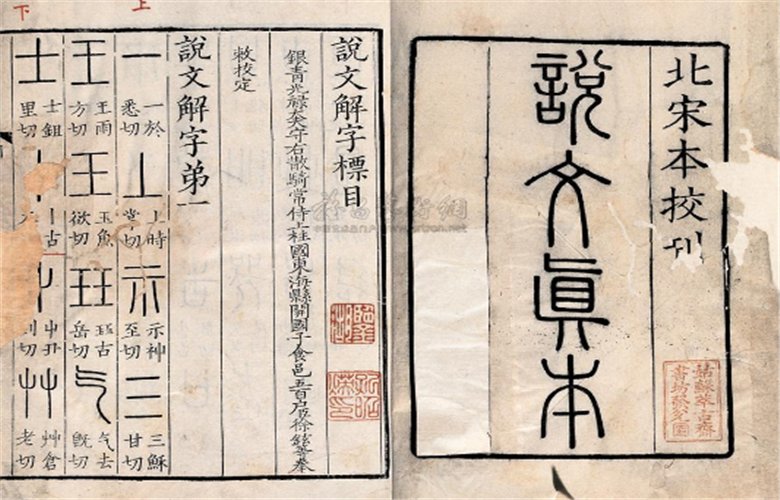 北宋本挍刊
說文眞本
說文解字標目
銀青光祿大夫守右散騎常侍上柱國東海縣開國子食邑五百户臣徐鉉等奉
敕挍定
說文解字弟一
一 一於悉切 丄 上時掌切 示 示神至切 三 三穌甘切
王 王雨方切 王 玉魚欲切 玨 玨古岳切 气 气去旣切
士 士鉏里切 丨 丨古 屮 屮丑列切 艸 艸倉老切
上
下